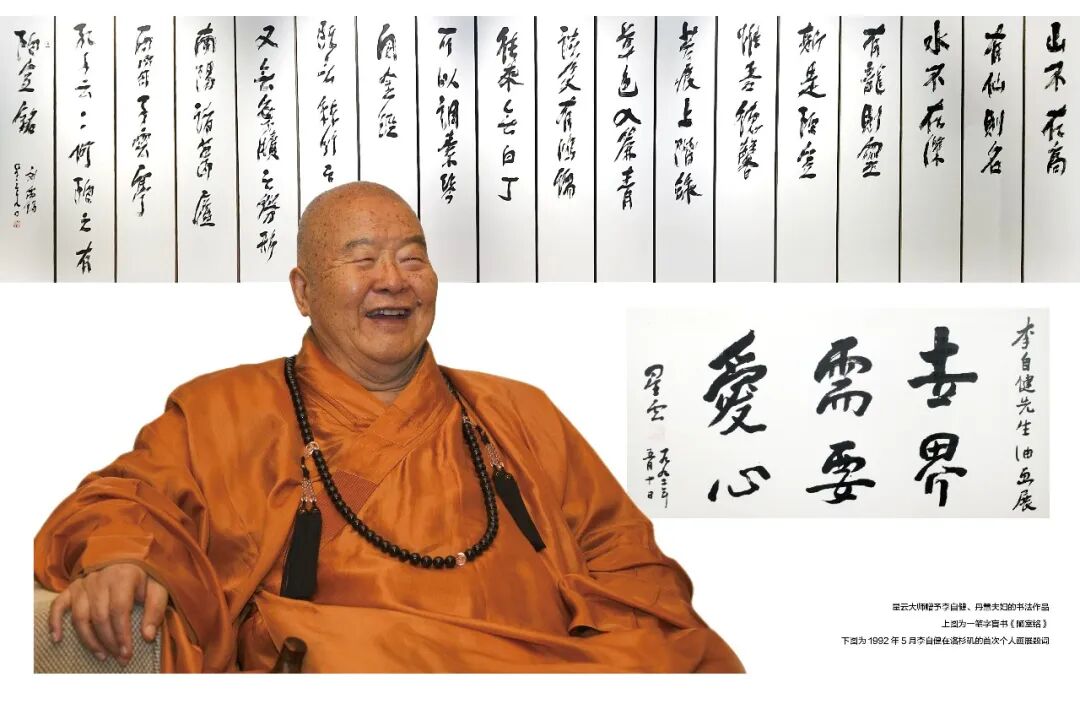 山不在高
有仙則名
水不在深
有龍則靈
斯是陋室
惟吾德馨
苔痕上階綠
草色入簾青
談笑有鴻儒
往來無白丁
可以調素琴
閱金經
絲竹之
又無案牘之勞形
南陽諸葛廬
西蜀子雲亭
孔子云何陋之有
陋室銘
李自健先生油画展
世界
需要
愛心
星云
一九九二年
五月十日
星云大师赠予李自健、丹慧夫妇的书法作品
上图为一笔字盲书《陋室铭》
下图为 1992 年 5 月李自健在洛杉矶的首次个人画展题词